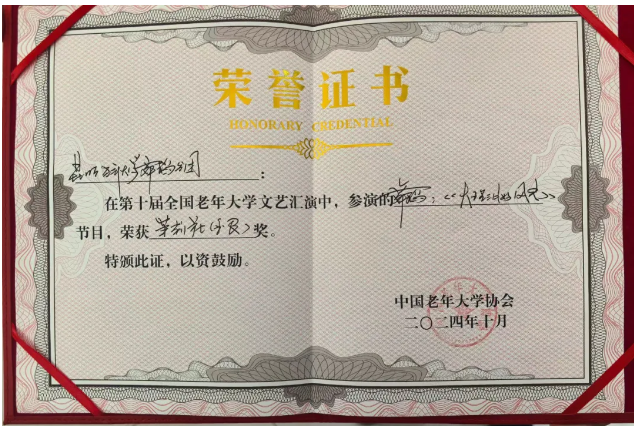 荣誉证书
HONORARY CREDENTIAL
:
在第十届全国老年大学文艺汇演中，参演的舞蹈：《
节目，荣获奖。
特颁此证，以资鼓励。
中国老年大学协会
二〇二四年十月